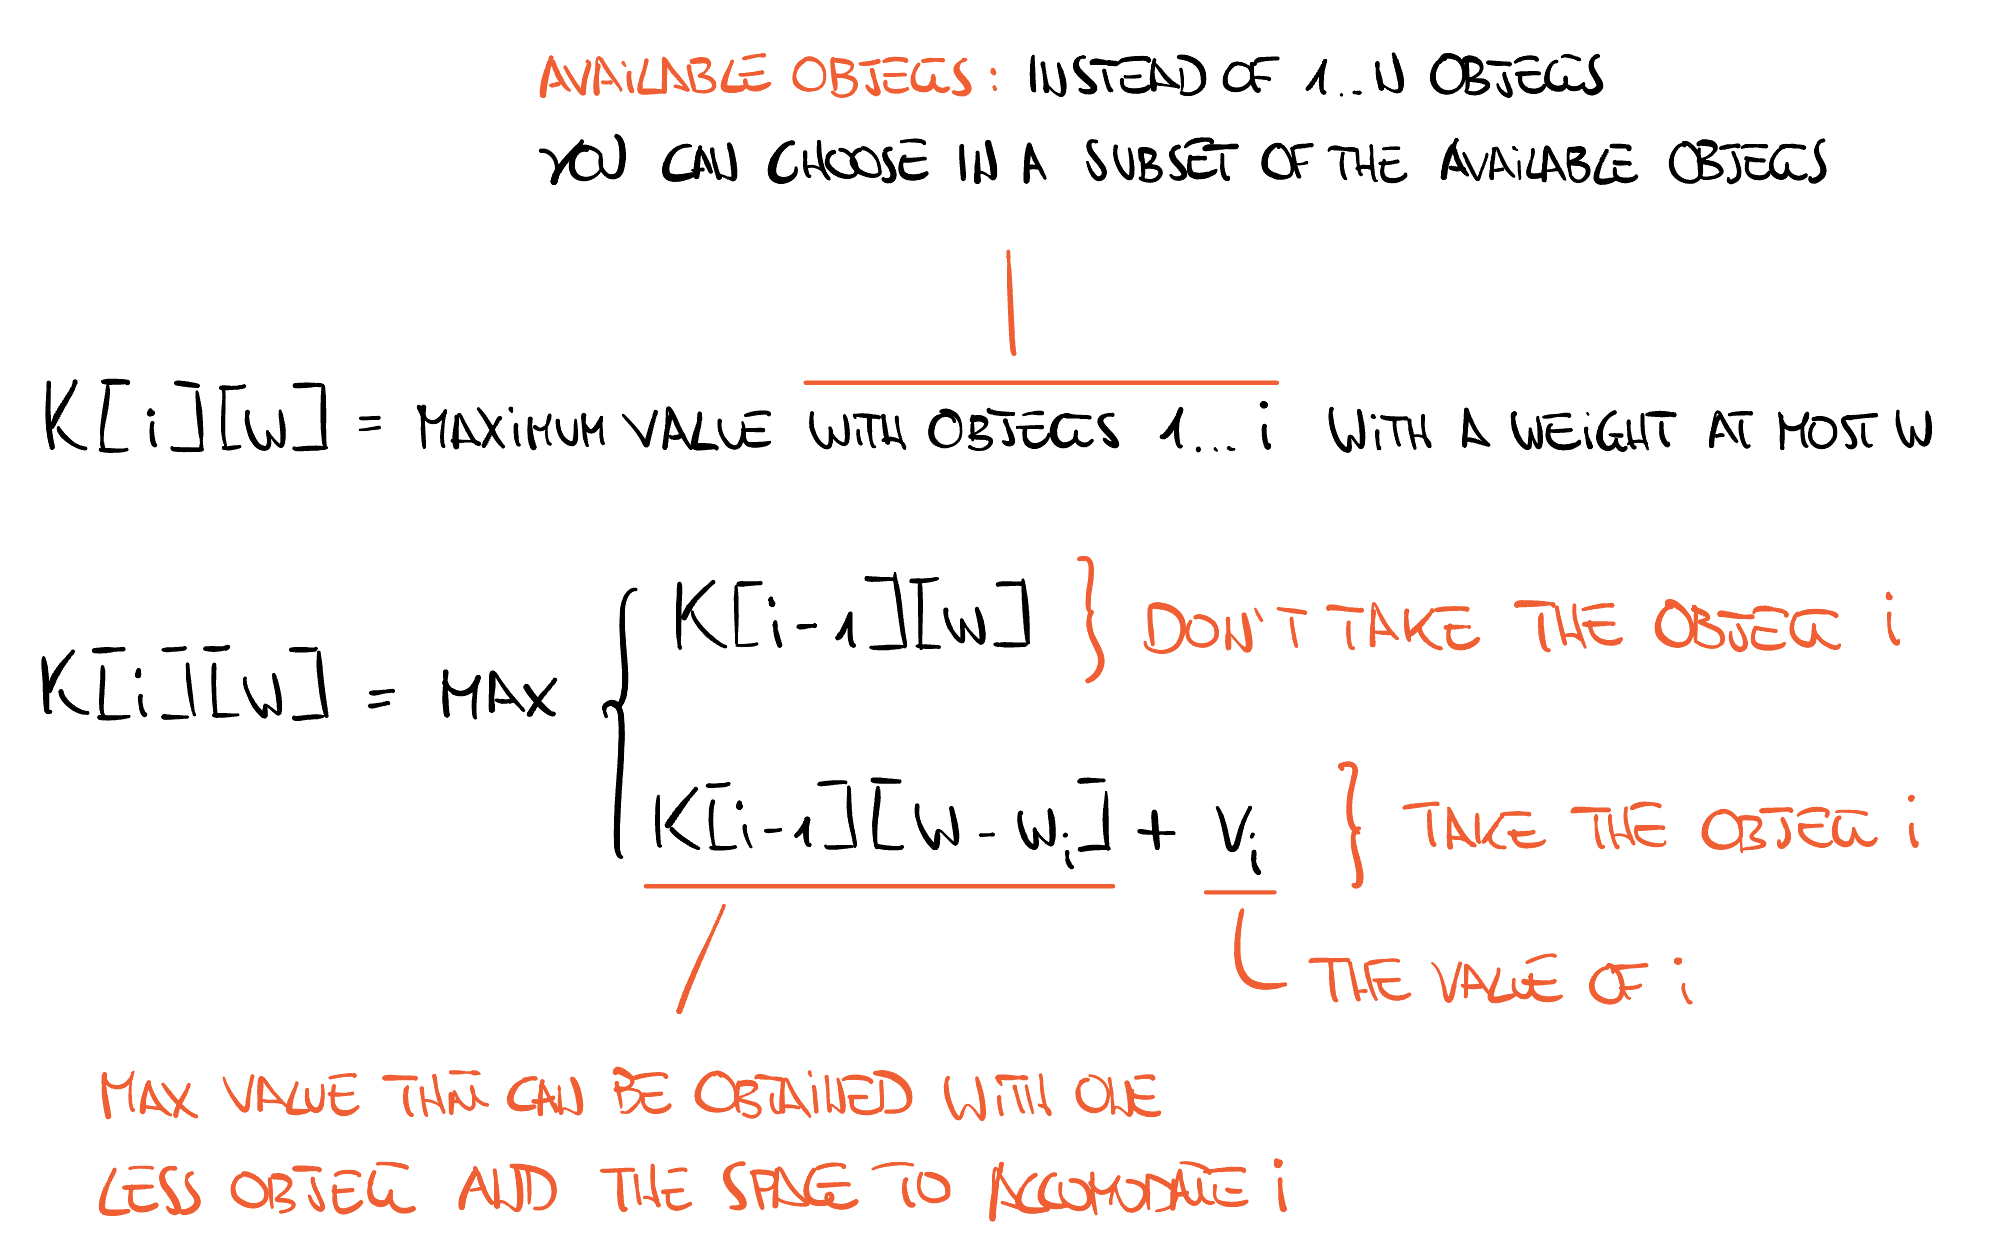 AVAILABLE OBJECTS: INSTEAD OF 1..N OBJECTS
YOU CAN CHOOSE IN A SUBSET OF THE AVAILABLE OBJECTS
K[i][W] = MAXIMUM VALUE WITH OBJECTS 1... i WITH A WEIGHT AT MOST W
K[i-1][W] } DON'T TAKE THE OBJECT i
K[i][W] = MAX {
K[i-1][W - wᵢ] + Vᵢ } TAKE THE OBJECT i
THE VALUE OF i
MAX VALUE THAT CAN BE OBTAINED WITH ONE
LESS OBJECT AND THE SPACE TO ACCOMODATE i